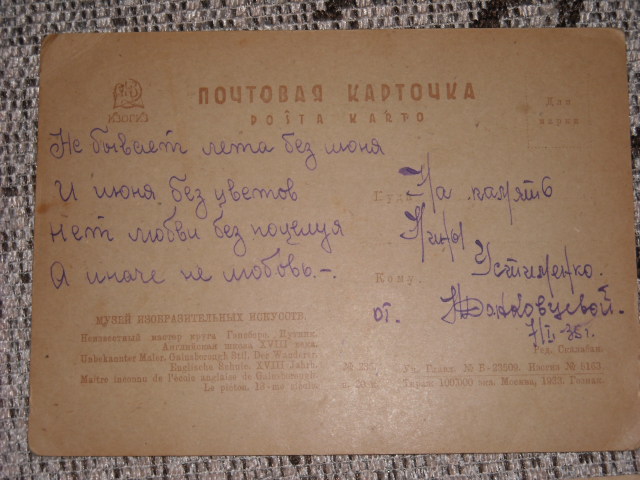 ПОЧТОВАЯ КАРТОЧКА
POŜTA KARTO
Для
марки
Не бывает лета без июня
И июня без цветов
Нет любви без поцелуя
А иначе не любовь.-.
Куда
На память
Нины
Устименко.
Кому
от.
МУЗЕЙ ИЗОБРАЗИТЕЛЬНЫХ ИСКУССТВ.
Неизвестный мастер круга Генсборо.
Английская школа XVIII века.
Unbekannter Maler. Gainsborough Stil. Der Wanderer.
Englische Schule. XVIII Jahrh.
Maître inconnu de l'école anglaise de Gainsborough.
Le piéton. 18-me siècle.
Ред.
Тираж 100'000 экз. Москва,